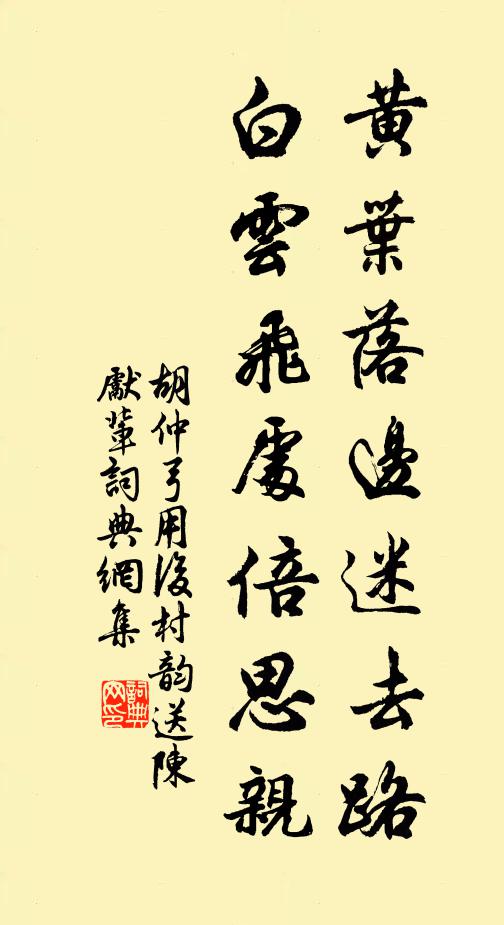 黃葉落邊迷去路
白雲飛處倍思親
胡仲弓用後村韵送陳
獻葦詞典網集
詞典网印